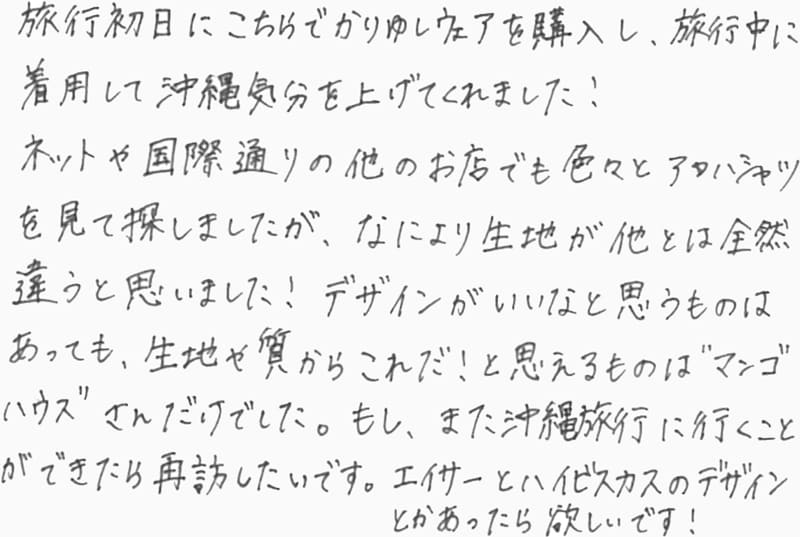 旅行初日にこちらでかりゆしウェアを購入し、旅行中に
着用して沖縄気分を上げてくれました!
ネットや国際通りの他のお店でも色々とアロハシャツ
を見て探しましたが、なにより生地が他とは全然
違うと思いました!デザインがいいなと思うものは
あっても、生地や質からこれだ!と思えるものは"マンゴ
ハウス"さんだけでした。もし、また沖縄旅行に行くこと
ができたら再訪したいです。エイサーとハイビスカスのデザイン
とかあったら欲しいです!